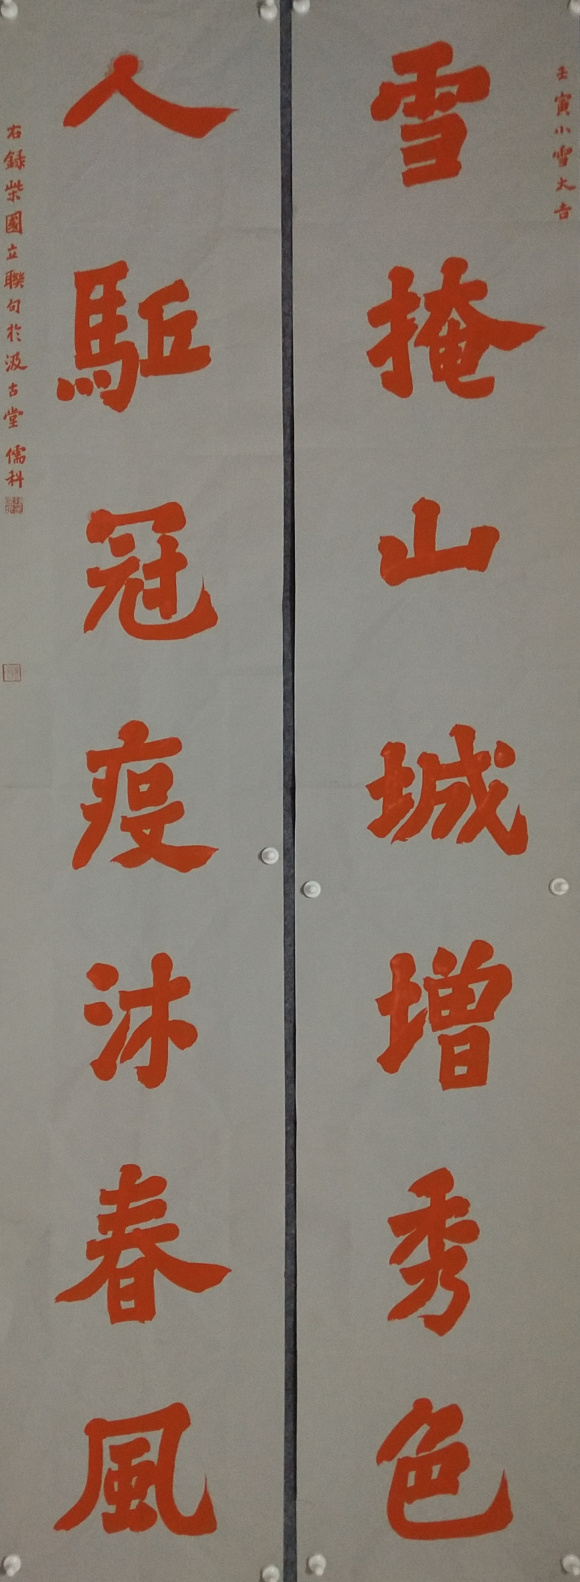 壬寅小雪大吉
雪掩山城增秀色
人駈冠疫沐春風
右録柴國立聯句於汲古堂 儒科